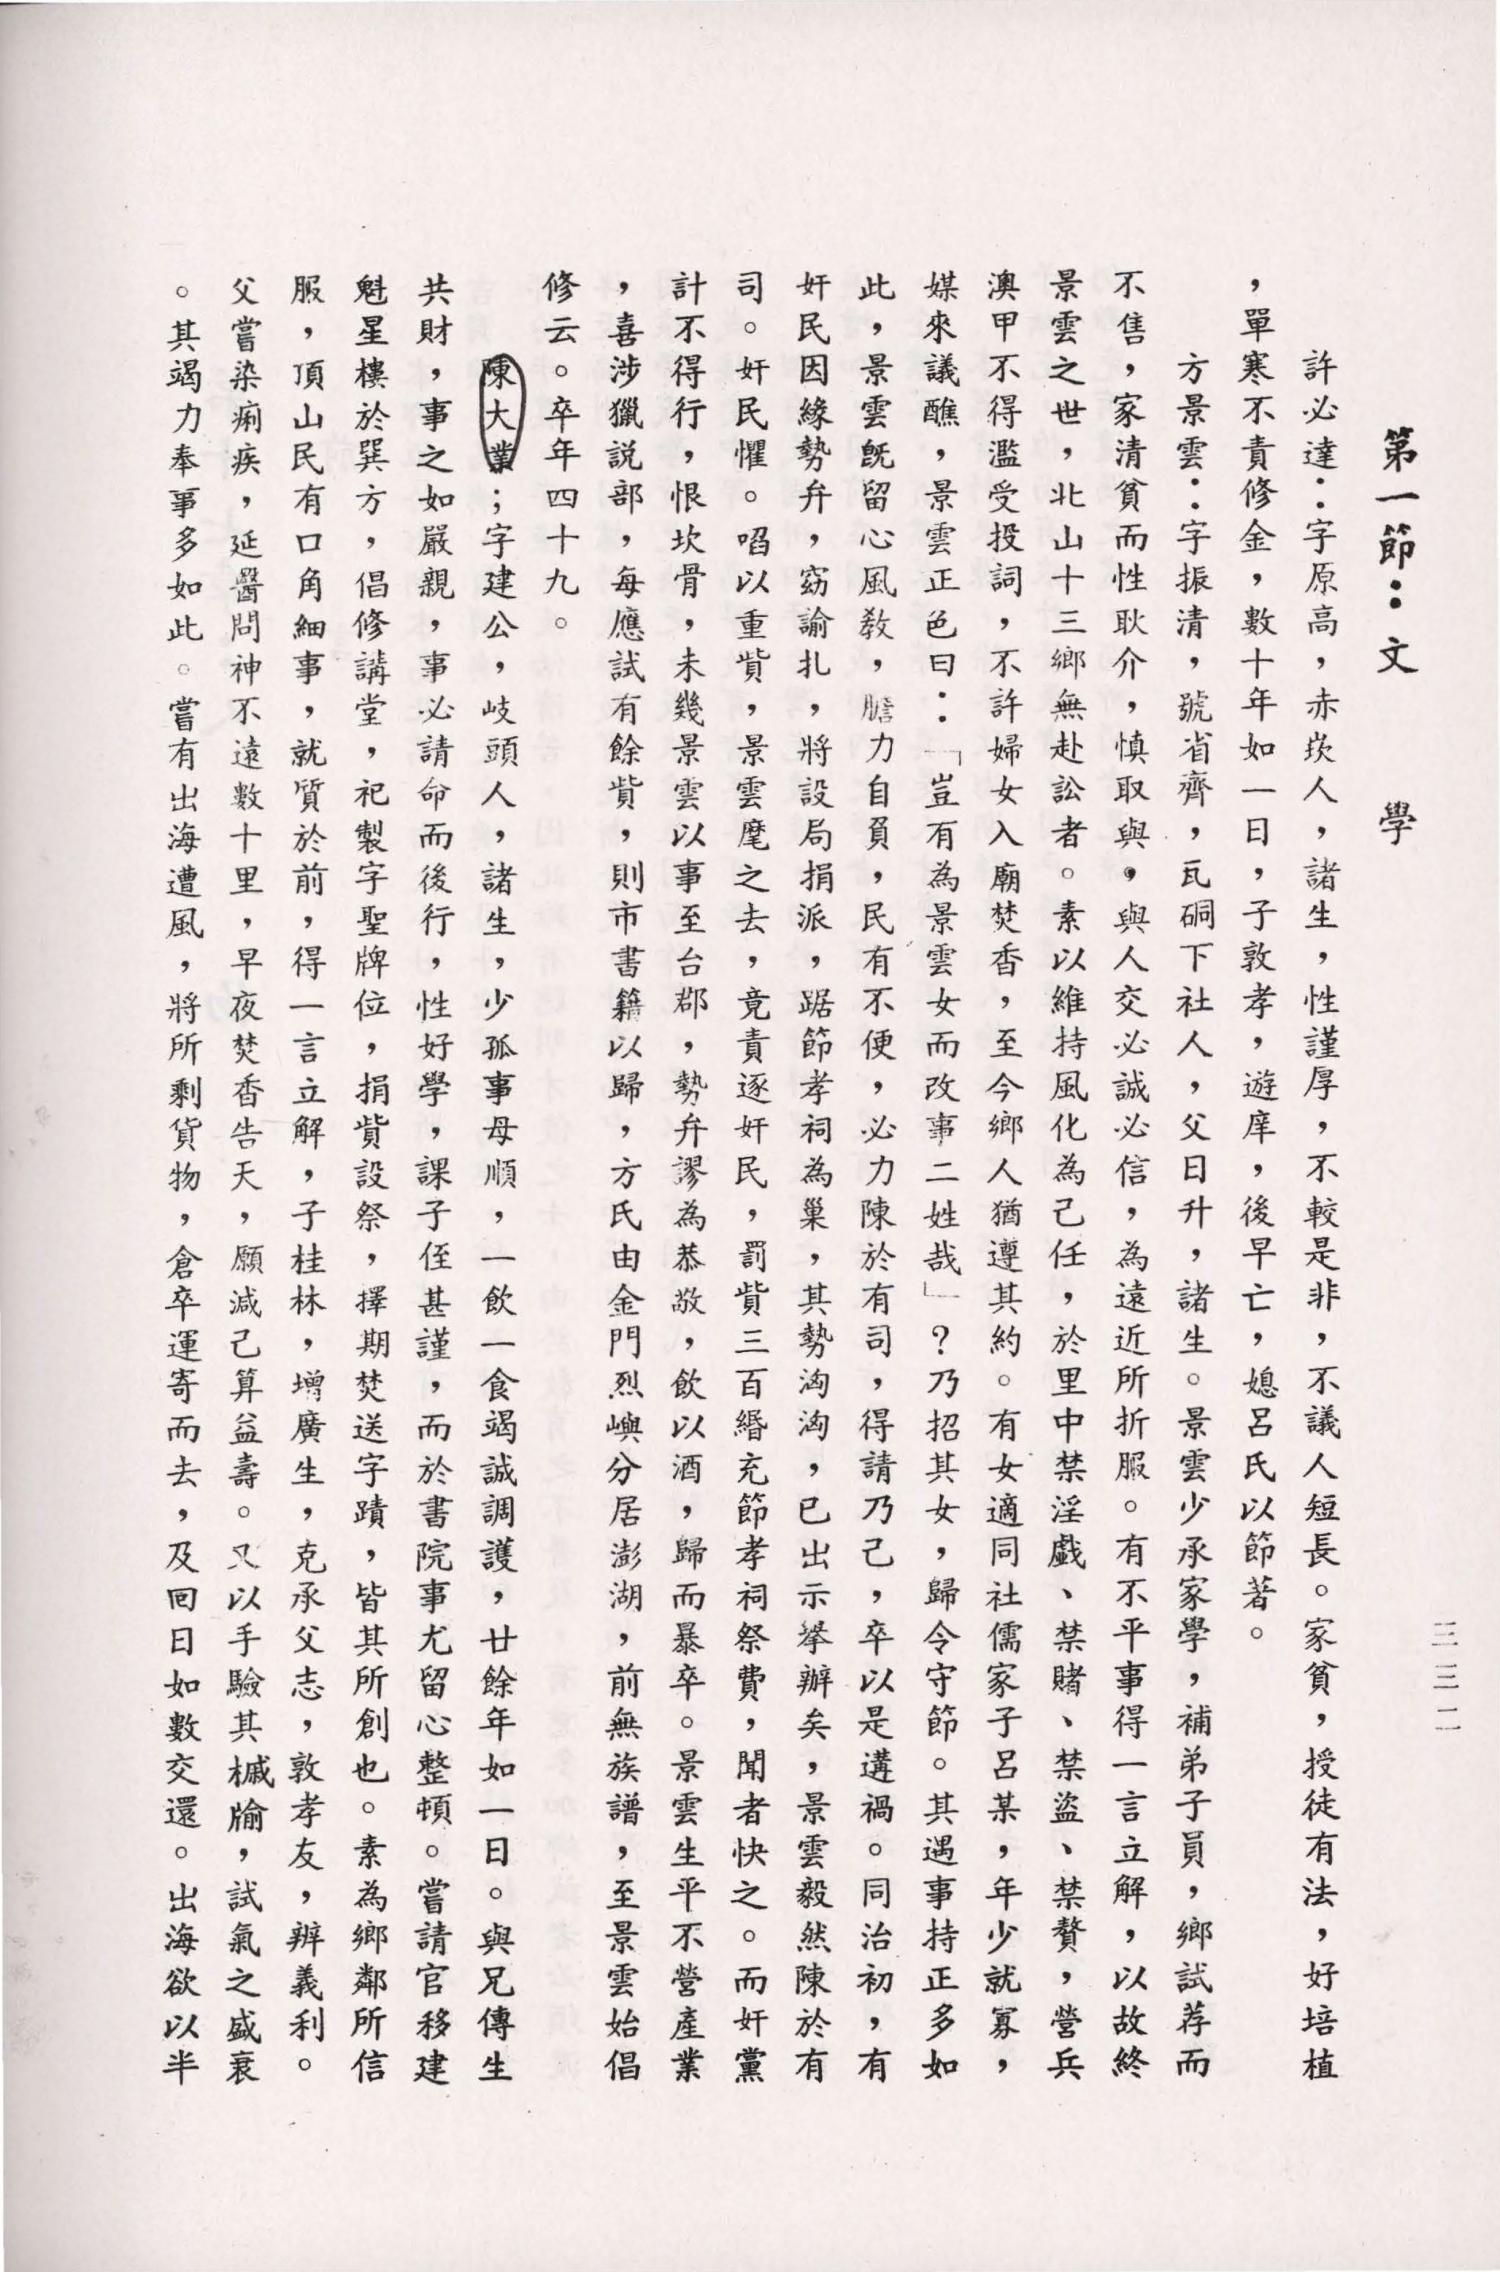 三三二
第一節：文　學
許必達：字原高，赤崁人，諸生，性謹厚，不較是非，不議人短長。家貧，授徒有法，好培植
，單寒不責修金，數十年如一日，子敦孝，遊庠，後早亡，媳呂氏以節著。
方景雲：字振清，號省齊，瓦硐下社人，父日升，諸生。景雲少承家學，補弟子員，鄉試荐而
不售，家清貧而性耿介，慎取與，與人交必誠必信，為遠近所折服。有不平事得一言立解，以故終
景雲之世，北山十三鄉無赴訟者。素以維持風化為己任，於里中禁淫戲、禁賭、禁盜、禁贅，營兵
澳甲不得濫受投詞，不許婦女入廟焚香，至今鄉人猶遵其約。有女適同社儒家子呂某，年少就寡，
媒來議醮，景雲正色曰：「豈有為景雲女而改事二姓哉」？乃招其女，歸令守節。其遇事持正多如
此，景雲既留心風教，膽力自負，民有不便，必力陳於有司，得請乃己，卒以是遘禍。同治初，有
奸民因緣勢弁，竊諭扎，將設局捐派，踞節孝祠為巢，其勢洶洶，已出示舉辦矣，景雲毅然陳於有
司。奸民懼。啗以重貲，景雲麾之去，竟責逐奸民，罰貲三百緡充節孝祠祭費，聞者快之。而奸黨
計不得行，恨坎骨，未幾景雲以事至台郡，勢弁謬為恭敬，飲以酒，歸而暴卒。景雲生平不營產業
，喜涉獵説部，每應試有餘貲，則市書籍以歸，方氏由金門烈嶼分居澎湖，前無族譜，至景雲始倡
修云。卒年四十九。
陳大業；字建公，岐頭人，諸生，少孤事母順，一飲一食竭誠調護，廿餘年如一日。與兄傳生
共財，事之如嚴親，事必請命而後行，性好學，課子侄甚謹，而於書院事尤留心整頓。嘗請官移建
魁星樓於巽方，倡修講堂，祀製字聖牌位，捐貲設祭，擇期焚送字蹟，皆其所創也。素為鄉鄰所信
服，頂山民有口角細事，就質於前，得一言立解，子桂林，增廣生，克承父志，敦孝友，辨義利。
父嘗染痢疾，延醫問神不遠數十里，早夜焚香告天，願減己算益壽。又以手驗其槭牏，試氣之盛衰
。其竭力奉事多如此。嘗有出海遭風，將所剩貨物，倉卒運寄而去，及回日如數交還。出海欲以半